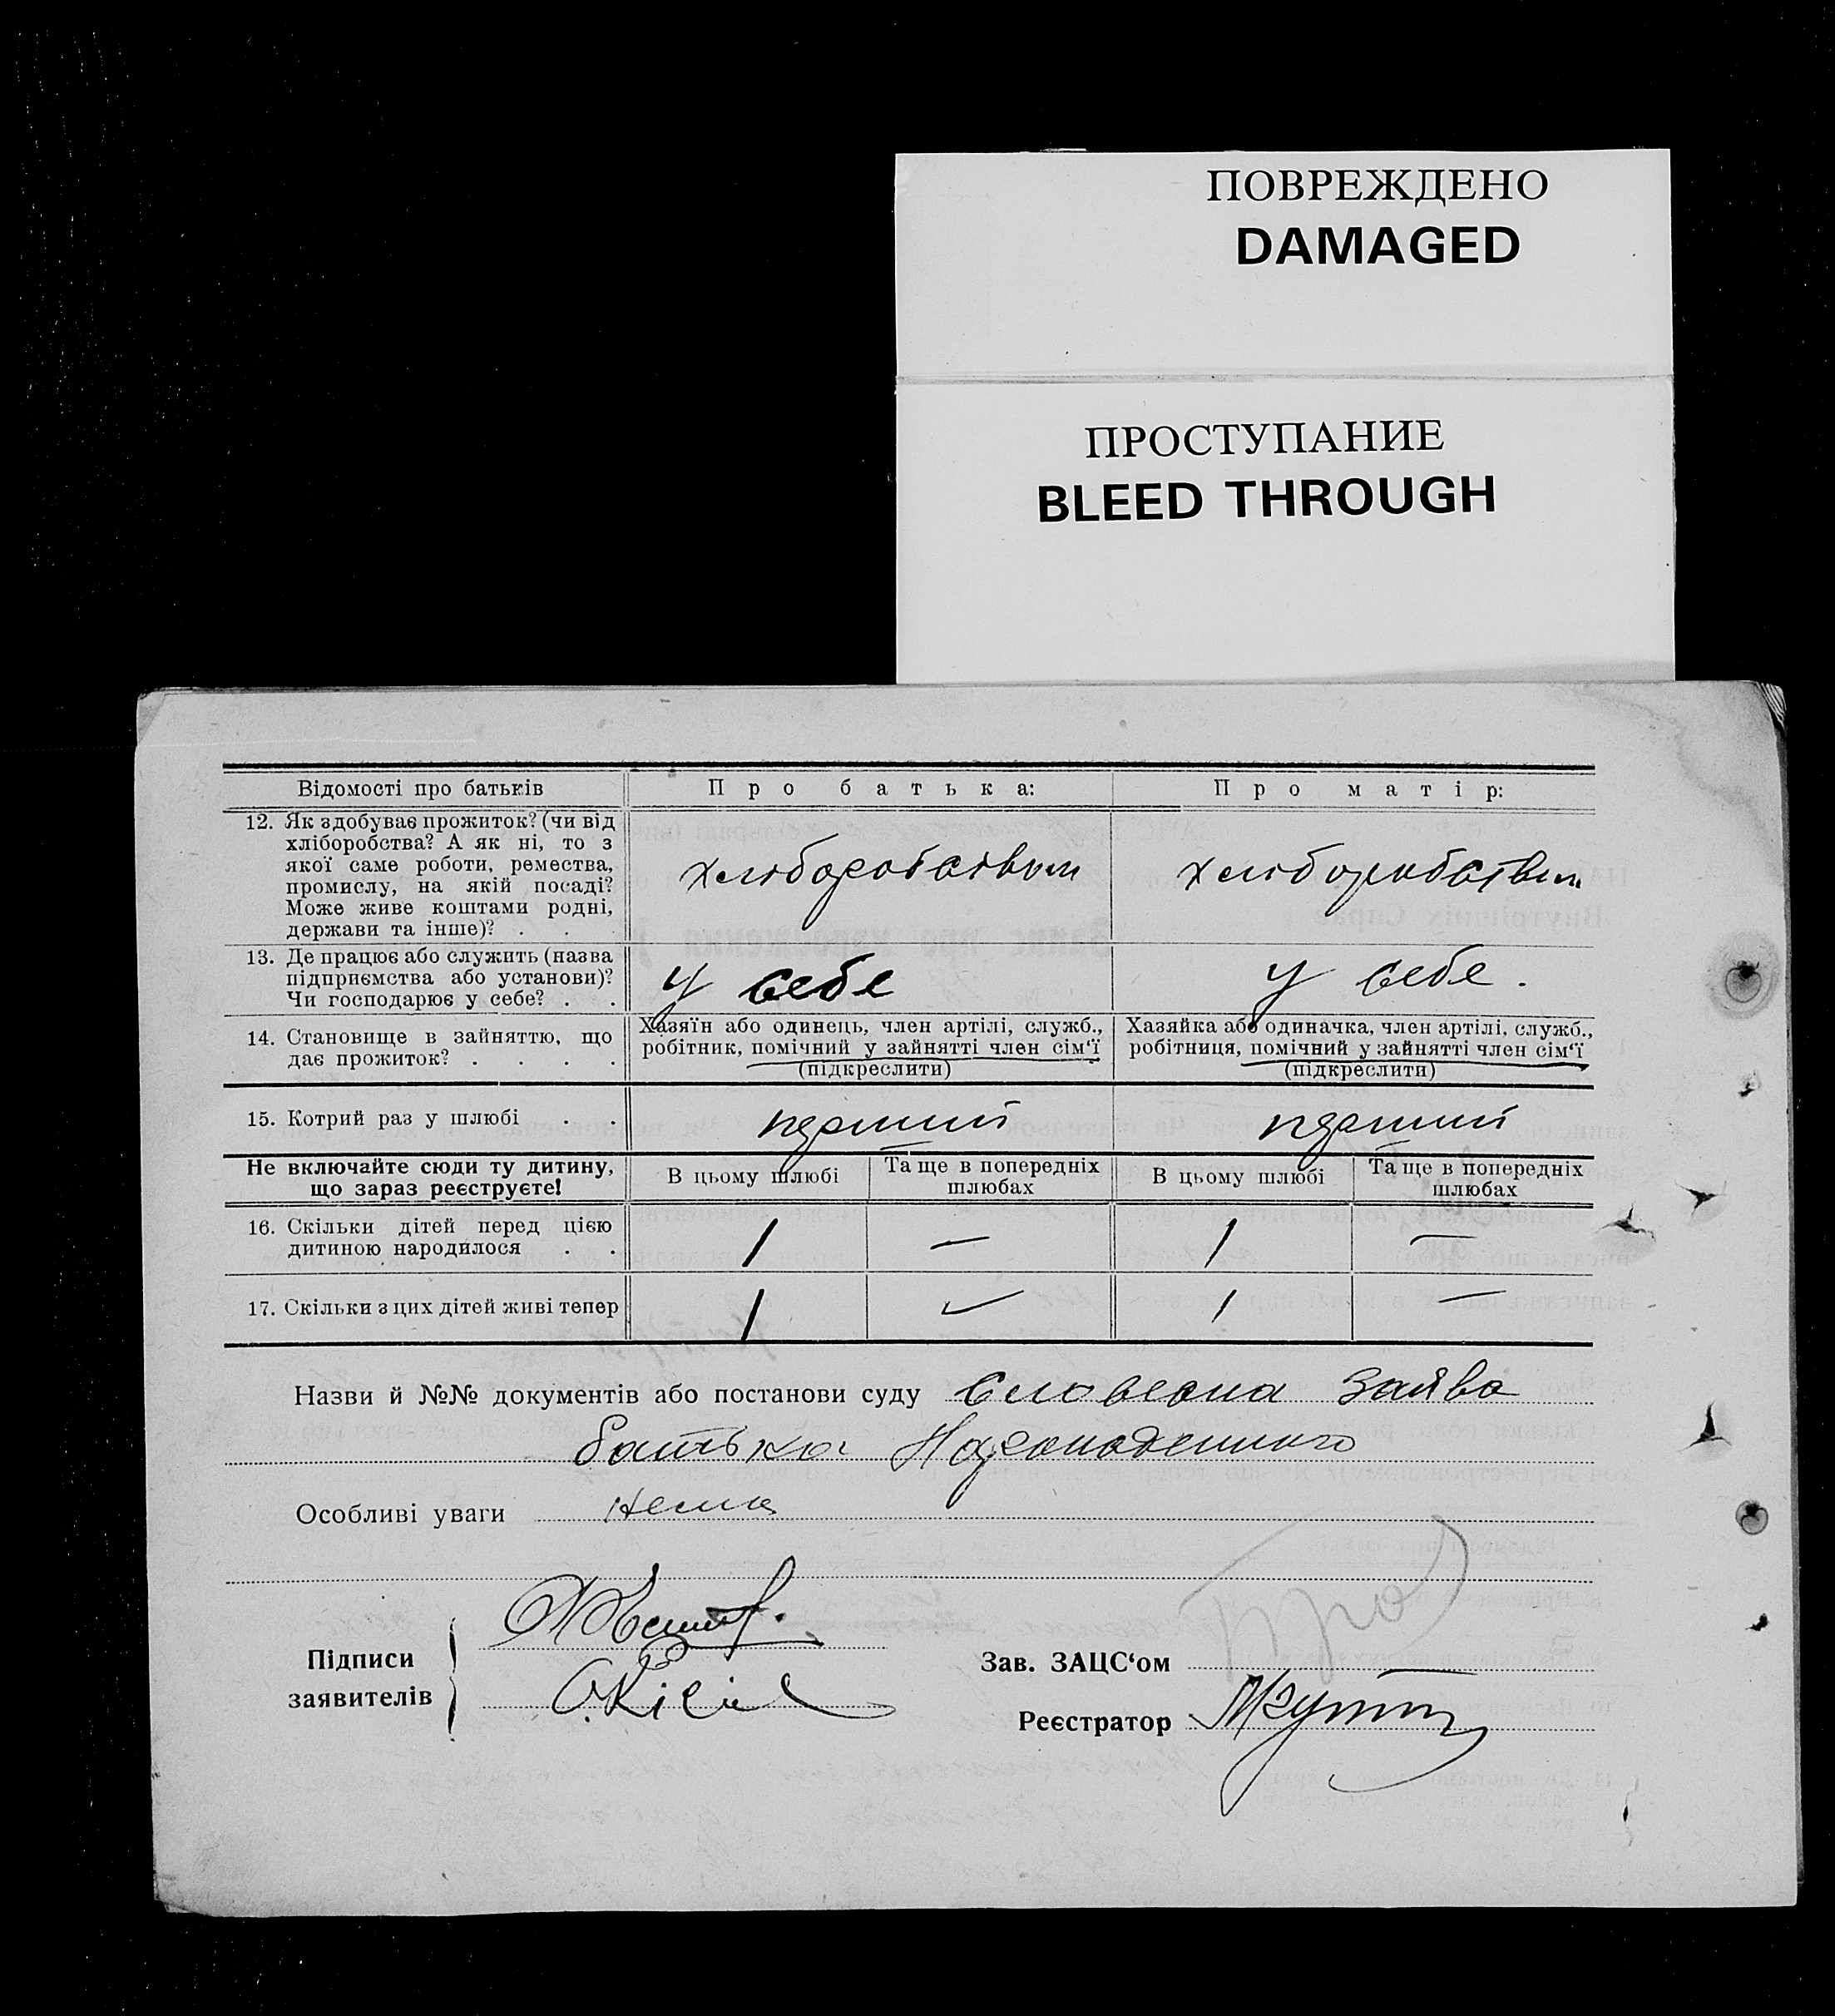 ПОВРЕЖДЕНО
DAMAGED
ПРОСТУПАНИЕ
BLEED THROUGH
Відомості про батьків
Про батька:
Про матір:
12. Як здобуває прожиток? (чи від
хліборобства? А як ні, то з
якої саме роботи, ремества,
промислу, на якій посаді?
Може живе коштами родні,
держави та інше)? . .
хліборобством
хліборобством
13. Де працює або служить (назва
підприємства або установи)?
Чи господарює у себе? . .
у себе
у себе.
14. Становище в зайняттю, що
дає прожиток? . . . .
Хазяїн або одинець, член артілі, служб.,
робітник, помічний у зайнятті член сім‘ї
(підкреслити)
Хазяйка або одиначка, член артілі, служб.,
робітниця, помічний у зайнятті член сім‘ї
(підкреслити)
15. Котрий раз у шлюбі . .
перший
перший
Не включайте сюди ту дитину,
що зараз реєструєте!
В цьому шлюбі
Та ще в попередніх
шлюбах
В цьому шлюбі
Та ще в попередніх
шлюбах
16. Скільки дітей перед цією
дитиною народилося . .
1
—
1
—
17. Скільки з цих дітей живі тепер
1
—
1
—
Назви й №№ документів або постанови суду словесна заява
батька Народженного
Особливі уваги нема
Підписи
заявителів
Зав. ЗАЦС‘ом
Реєстратор